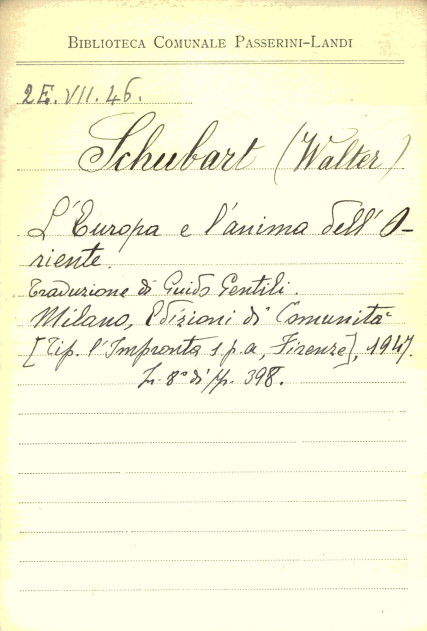 BIBLIOTECA COMUNALE PASSERINI-LANDI
2E. VII. 46.
Schubart (Walter)
L'Europa e l'anima dell'O-
riente.
Traduzione di Guido Gentili.
Milano, Edizioni di Comunità
[Tip. l'Impronta s.p.a, Firenze], 1947.
In 8° di pp. 398.